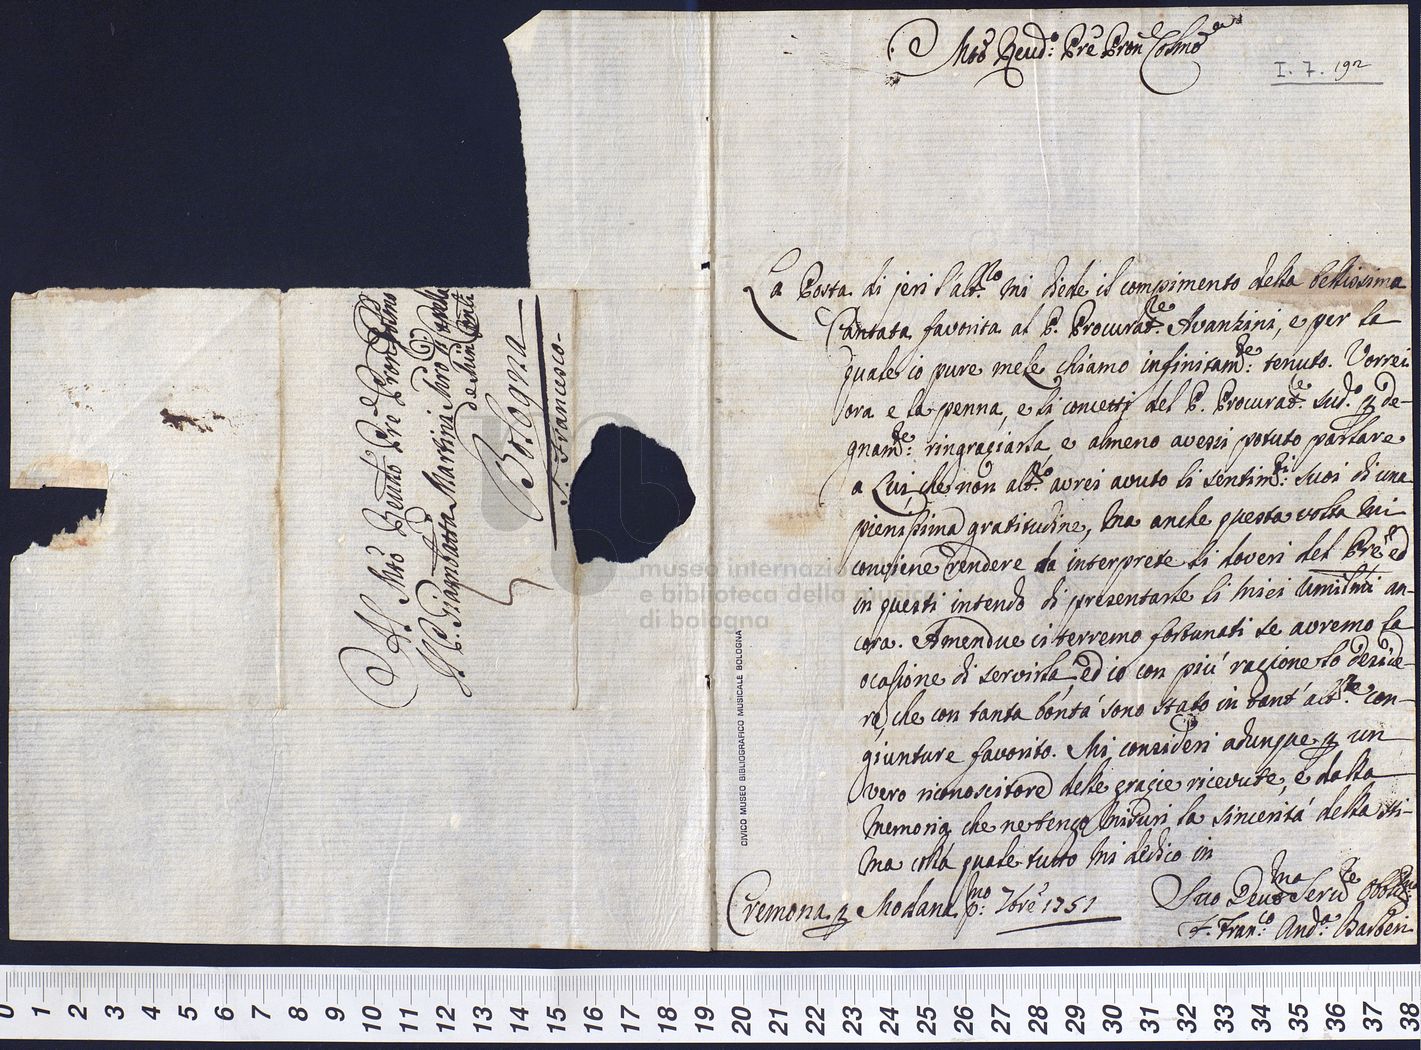 Mto Reudo: Pre Pron Colmo
I. 7. 192
La Posta di jeri l'altro mi diede il compimento della bellissima
Cantata favorita al P. Procurat.re Avanzini, e per la
quale io pure mele chiamo infinitam.te tenuto. Vorrei
ora e la penna, e li concetti del P. Procurat.re sud.o p de-
gnam.te ringraziarla, e almeno avessi potuto parlare
a Lui, che non alt.o avrei avuto li sentim.ti suoi di una
pienissima gratitudine, ma anche questa volta mi
conviene rendere da interprete li doveri del Pre ed
in questi intendo di presentarle li miei umilmi an-
cora. Amendue ci terremo fortunati se avremo la
ocasione di servirla, ed io con più ragione lo deside-
ro, che con tanta bontà sono stato in tant' alt.re con-
giunture favorito. Mi consideri adunque p un
vero riconoscitore delle grazie ricevute, e dalla
memoria che ne tengo misuri la sincerità della sti-
ma colla quale tutto mi dedico in
Cremona p Modana p:mo 7bre 1751
Suo Devma Serv.e Obblmo
F. Franco Anda Barberi
Al Mto Reudo Pre Pron Colmo
Il P. Giambatta Martini Mro di Capella
de Min: Conli
Bologna
S. Francesco
CIVICO MUSEO BIBLIOGRAFICO MUSICALE BOLOGNA
museo internazionale
e biblioteca della musica
di bologna
0 1 2 3 4 5 6 7 8 9 10 11 12 13 14 15 16 17 18 19 20 21 22 23 24 25 26 27 28 29 30 31 32 33 34 35 36 37 38